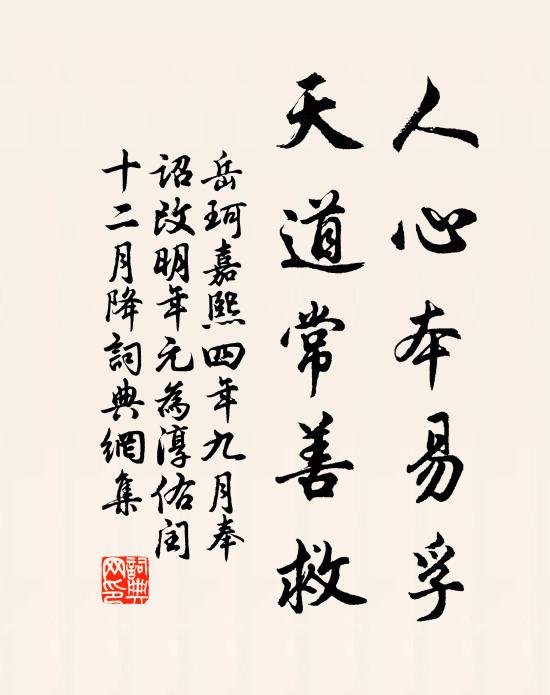 人心本易孚
天道常善救
岳珂嘉熙四年九月奉
詔改明年元為淳佑閏
十二月降詞典網集
詞典網印